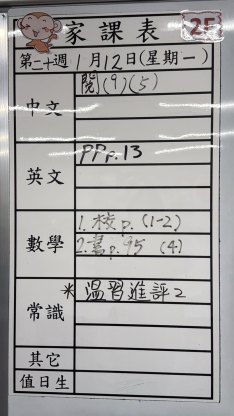 家課表 2F
第二十週 1月12日(星期一)
中文 閱(9)(5)
英文 PP p.13
數學 1. 校 p. (1-2)
2. 書 p.95 (4)
常識 * 溫習進評2
其它
值日生